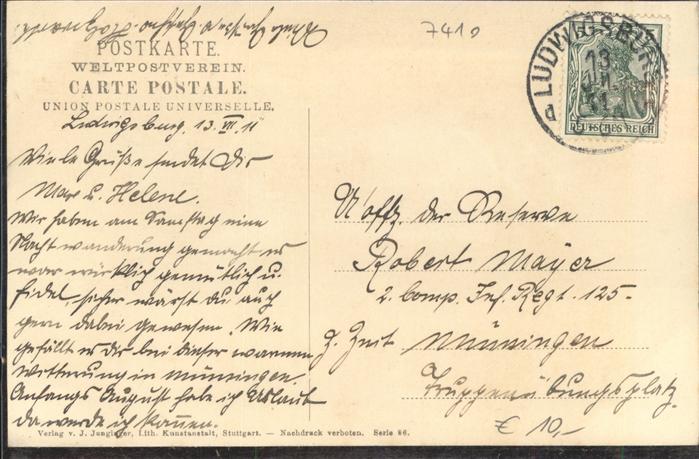 7410
POSTKARTE.
WELTPOSTVEREIN.
CARTE POSTALE.
UNION POSTALE UNIVERSELLE.
LUDWIGSBURG
13
DEUTSCHES REICH
Ludwigsburg, 13. VII. 11
Viele Grüße sendet Dir
Max u. Helene.
Wir haben am Samstag eine
Nachtwanderung gemacht es
war wirklich gemütlich u.
fidel, sicher wärst Du auch
gern dabei gewesen. Wie
gefällt es Dir bei dieser warmen
Witterung in Münsingen
Anfangs August habe ich Urlaub
da werde ich kommen.
Uoffz. der Reserve
Robert Mayer
2. Comp. Inf. Regt. 125.
z. Zeit Münsingen
Truppenübungsplatz.
€ 10,-
Verlag v. J. Junginger, Lith. Kunstanstalt, Stuttgart. — Nachdruck verboten. Serie 86.